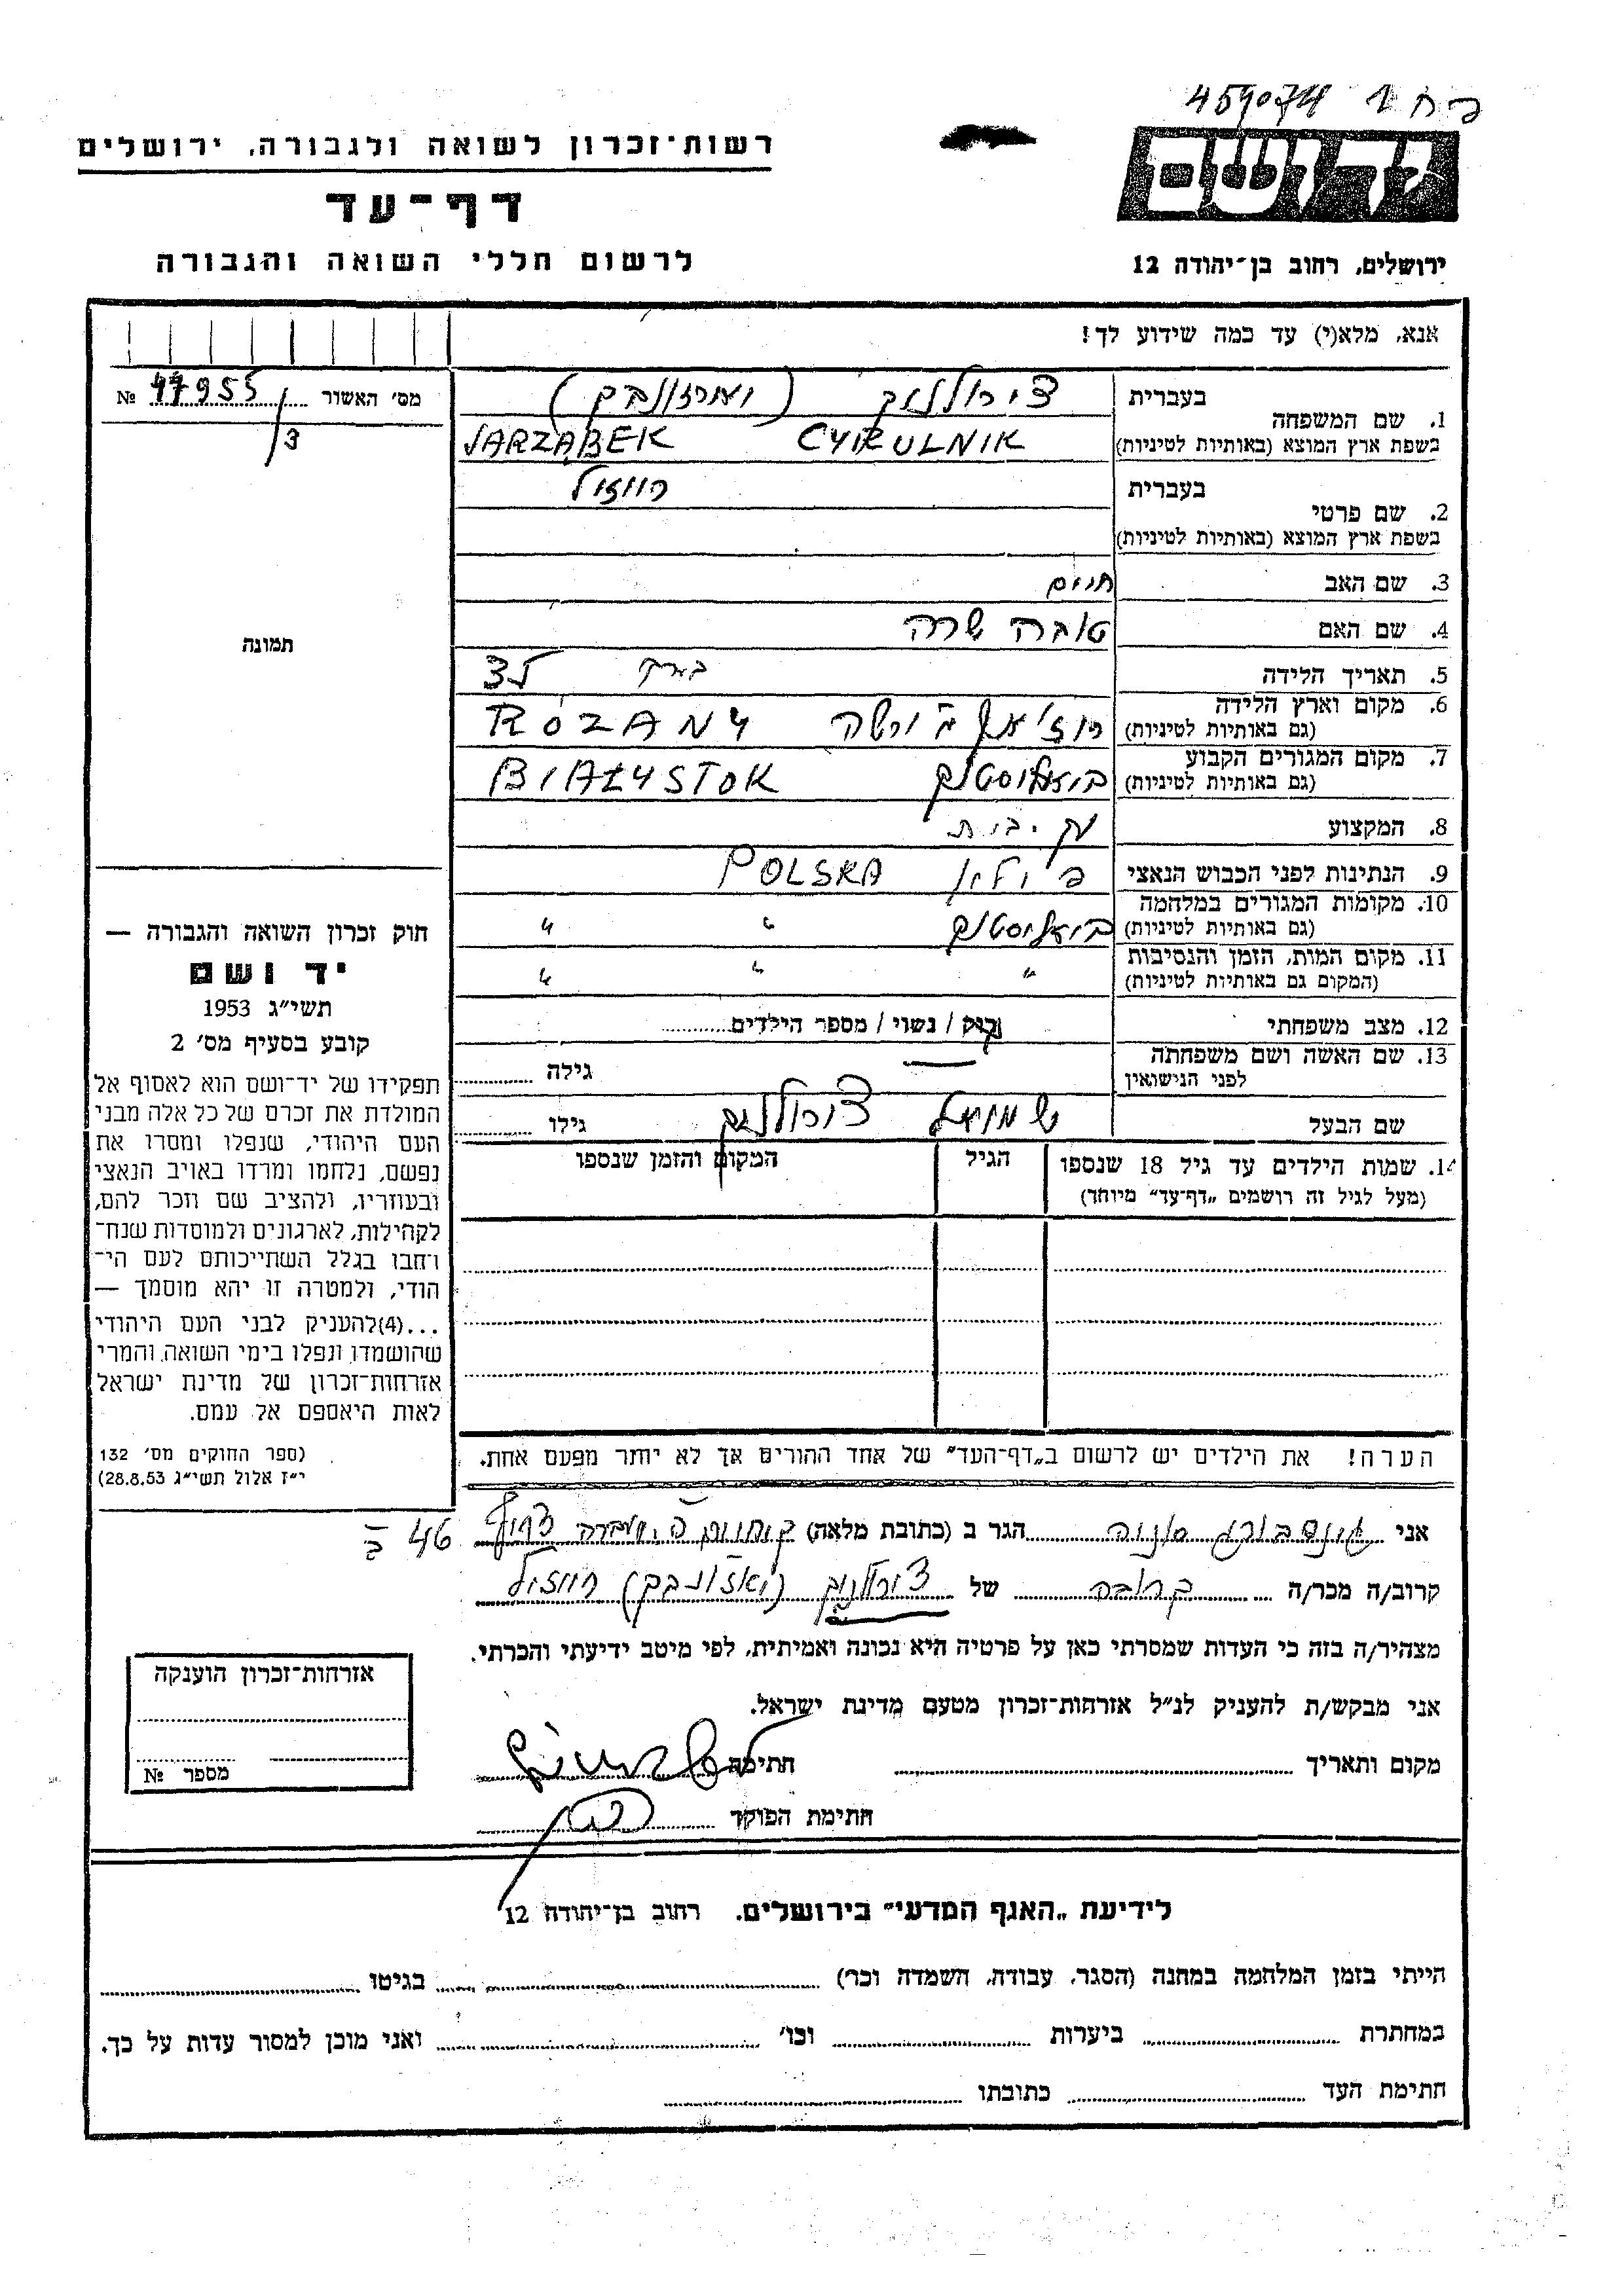 פ ח 1 459074
יד ושם
רשות־זכרון לשואה ולגבורה, ירושלים
דף־עד
ירושלים, רחוב בן־יהודה 12
לרשום חללי השואה והגבורה
אנא, מלא(י) עד כמה שידוע לך!
מס׳ האשור № 47955
/3
בעברית
1. שם המשפחה
צירולניק
בשפת ארץ המוצא (באותיות לטיניות)
CYRULNIK JARZĄBEK
בעברית רויזל
2. שם פרטי
בשפת ארץ המוצא (באותיות לטיניות)
3. שם האב חיים
4. שם האם טובה שרה
5. תאריך הלידה בערך
6. מקום וארץ הלידה
(גם באותיות לטיניות) ROZANY
7. מקום המגורים הקבוע
(גם באותיות לטיניות) ביאליסטוק BIAŁYSTOK
8. המקצוע
9. הנתינות לפני הכבוש הנאצי פולין POLSKA
10. מקומות המגורים במלחמה
(גם באותיות לטיניות) ביאליסטוק " "
11. מקום המות, הזמן והנסיבות
(המקום גם באותיות לטיניות) " " "
12. מצב משפחתי רוק / נשוי / מספר הילדים
13. שם האשה ושם משפחתה
לפני הנישואין גילה
שם הבעל שמואל צירולניק גילו
14. שמות הילדים עד גיל 18 שנספו הגיל המקום והזמן שנספו
(מעל לגיל זה רושמים „דף־עד״ מיוחד)
הערה! את הילדים יש לרשום ב„דף־העד״ של אחד ההורים אך לא יותר מפעם אחת.
תמונה
חוק זכרון השואה והגבורה —
יד ושם
תשי״ג 1953
קובע בסעיף מס׳ 2
תפקידו של יד־ושם הוא לאסוף אל
המולדת את זכרם של כל אלה מבני
העם היהודי, שנפלו ומסרו את
נפשם, נלחמו ומרדו באויב הנאצי
ובעוזריו, ולהציב שם וזכר להם,
לקהילות, לארגונים ולמוסדות שנח־
רבו בגלל השתייכותם לעם הי־
הודי, ולמטרה זו יהא מוסמך —
...(4)להעניק לבני העם היהודי
שהושמדו ונפלו בימי השואה והמרי
אזרחות־זכרון של מדינת ישראל
לאות היאספם אל עמם.
(ספר החוקים מס׳ 132
י״ז אלול תשי״ג 28.8.53)
אני גינסבורג הגר ב (כתובת מלאה) 46
קרוב/ה מכר/ה קרובה של צירולניק רויזל
מצהיר/ה בזה כי העדות שמסרתי כאן על פרטיה היא נכונה ואמיתית, לפי מיטב ידיעתי והכרתי.
אני מבקש/ת להעניק לנ״ל אזרחות־זכרון מטעם מדינת ישראל.
מקום ותאריך חתימה
חתימת הפוקד
אזרחות־זכרון הוענקה
מספר №
לידיעת „האגף המדעי״ בירושלים. רחוב בן־יהודה 12
הייתי בזמן המלחמה במחנה (הסגר, עבודה, השמדה וכר׳) בגיטו
במחתרת ביערות וכו׳ ואני מוכן למסור עדות על כך.
חתימת העד כתובתו